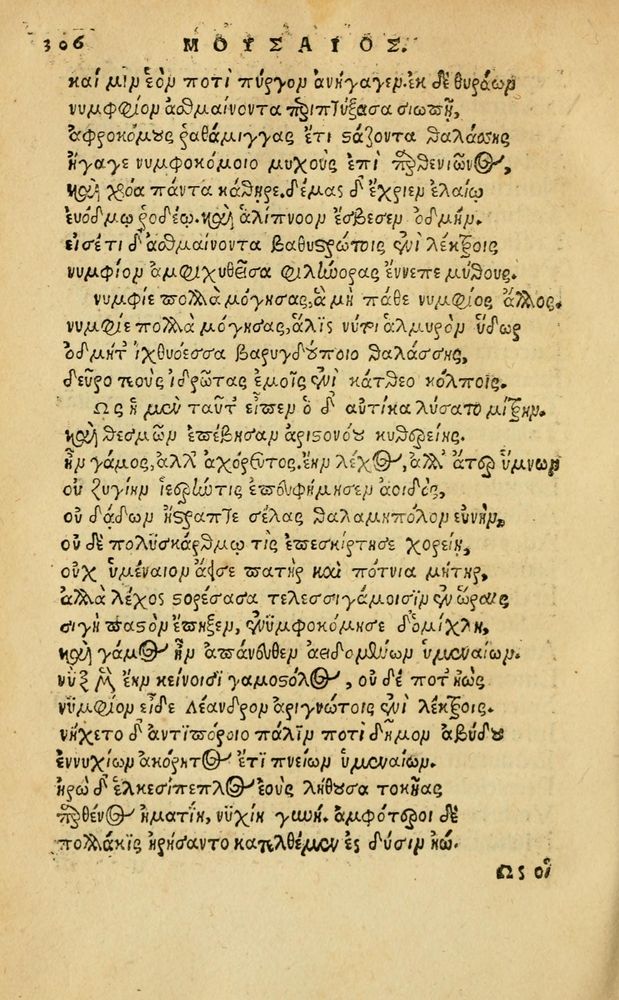 306 ΜΟΥΣΑΙΟΣ.
καί μιν ἑὸν ποτὶ πύργον ἀνήγαγεν. ἐκ δὲ θυράων
νυμφίον ἀσθμαίνοντα περιπτύξασα σιωπῇ,
ἀφροκόμους ῥαθάμιγγας ἔτι στάζοντα θαλάσσης
ἤγαγε νυμφοκόμοιο μυχοὺς ἐπὶ παρθενιῶνος,
καὶ χρόα πάντα κάθηρε. δέμας δ' ἔχριεν ἐλαίῳ
εὐόδμῳ ῥοδέῳ. καὶ ἁλίπνοον ἔσβεσεν ὀδμήν.
εἰσέτι δ' ἀσθμαίνοντα βαθυστρώτοις ἐνὶ λέκτροις
νυμφίον ἀμφιχυθεῖσα φιλήνορας ἔννεπε μύθους.
νυμφίε πολλὰ μόγησας, ἃ μὴ πάθε νυμφίος ἄλλος.
νυμφίε πολλὰ μόγησας, ἅλις νύ τοι ἁλμυρὸν ὕδωρ
ὀδμή τ' ἰχθυόεσσα βαρυγδούποιο θαλάσσης,
δεῦρο τεοὺς ἱδρῶτας ἐμοῖς ἐνὶ κάτθεο κόλποις.
Ως ἡ μὲν ταῦτ' εἶπεν ὁ δ' αὐτίκα λύσατο μίτρην.
καὶ θεσμῶν ἐπέβησαν ἀριστονόου κυθερείης.
ἦν γάμος, ἀλλ' ἀχόρευτος. ἔην λέχος, ἀλλ' ἄτερ ὕμνων
οὐ ζυγίην ἱερὴν τις ἐπευφήμησεν ἀοιδός,
οὐ δάδων ἤστραπτε σέλας θαλαμηπόλον εὐνήν,
οὐ δὲ πολυσκάρθμῳ τὶς ἐπεσκίρτησε χορείῃ,
οὐχ ὑμέναιον ἄεισε πατὴρ καὶ πότνια μήτηρ,
ἀλλὰ λέχος στορέσασα τελεσσιγάμοισιν ἐν ὥραις
σιγὴ παστὸν ἔπηξεν, ἐνυμφοκόμησε δ' ὁμίχλη,
καὶ γάμος ἦν ἀπάνευθεν ἀειδομένων ὑμεναίων.
νὺξ μὲν ἔην κείνοισι γαμοστόλος, οὐ δέ ποτ' ἠὼς
νυμφίον εἶδε Λέανδρον ἀριγνώτοις ἐνὶ λέκτροις.
νήχετο δ' ἀντιπόροιο πάλιν ποτὶ δῆμον ἀβύδου
ἐννυχίων ἀκόρητος ἔτι πνείων ὑμεναίων.
ἡρὼ δ' ἑλκεσίπεπλος ἑοὺς λήθουσα τοκῆας
παρθένος ἠματίη, νυχίη γυνή. ἀμφότεροι δὲ
πολλάκις ἠρήσαντο κατελθέμεν ἐς δύσιν ἠώ.
Ως οἱ